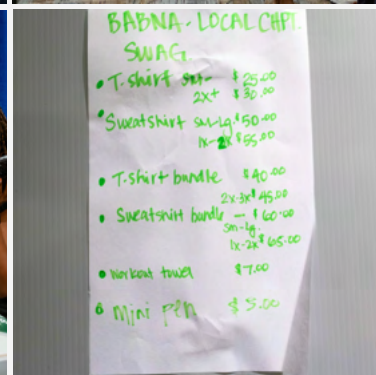 BABNA - LOCAL CHPT.
SWAG
• T-shirt sm- $25.00
2x+ $30.00
• Sweatshirt sm-lg. $50.00
1x-2x $55.00
• T-shirt bundle $40.00
2x-3x $45.00
• Sweatshirt bundle - $60.00
sm-lg.
1x-2x $65.00
• Workout towel $7.00
• Mini pen $5.00